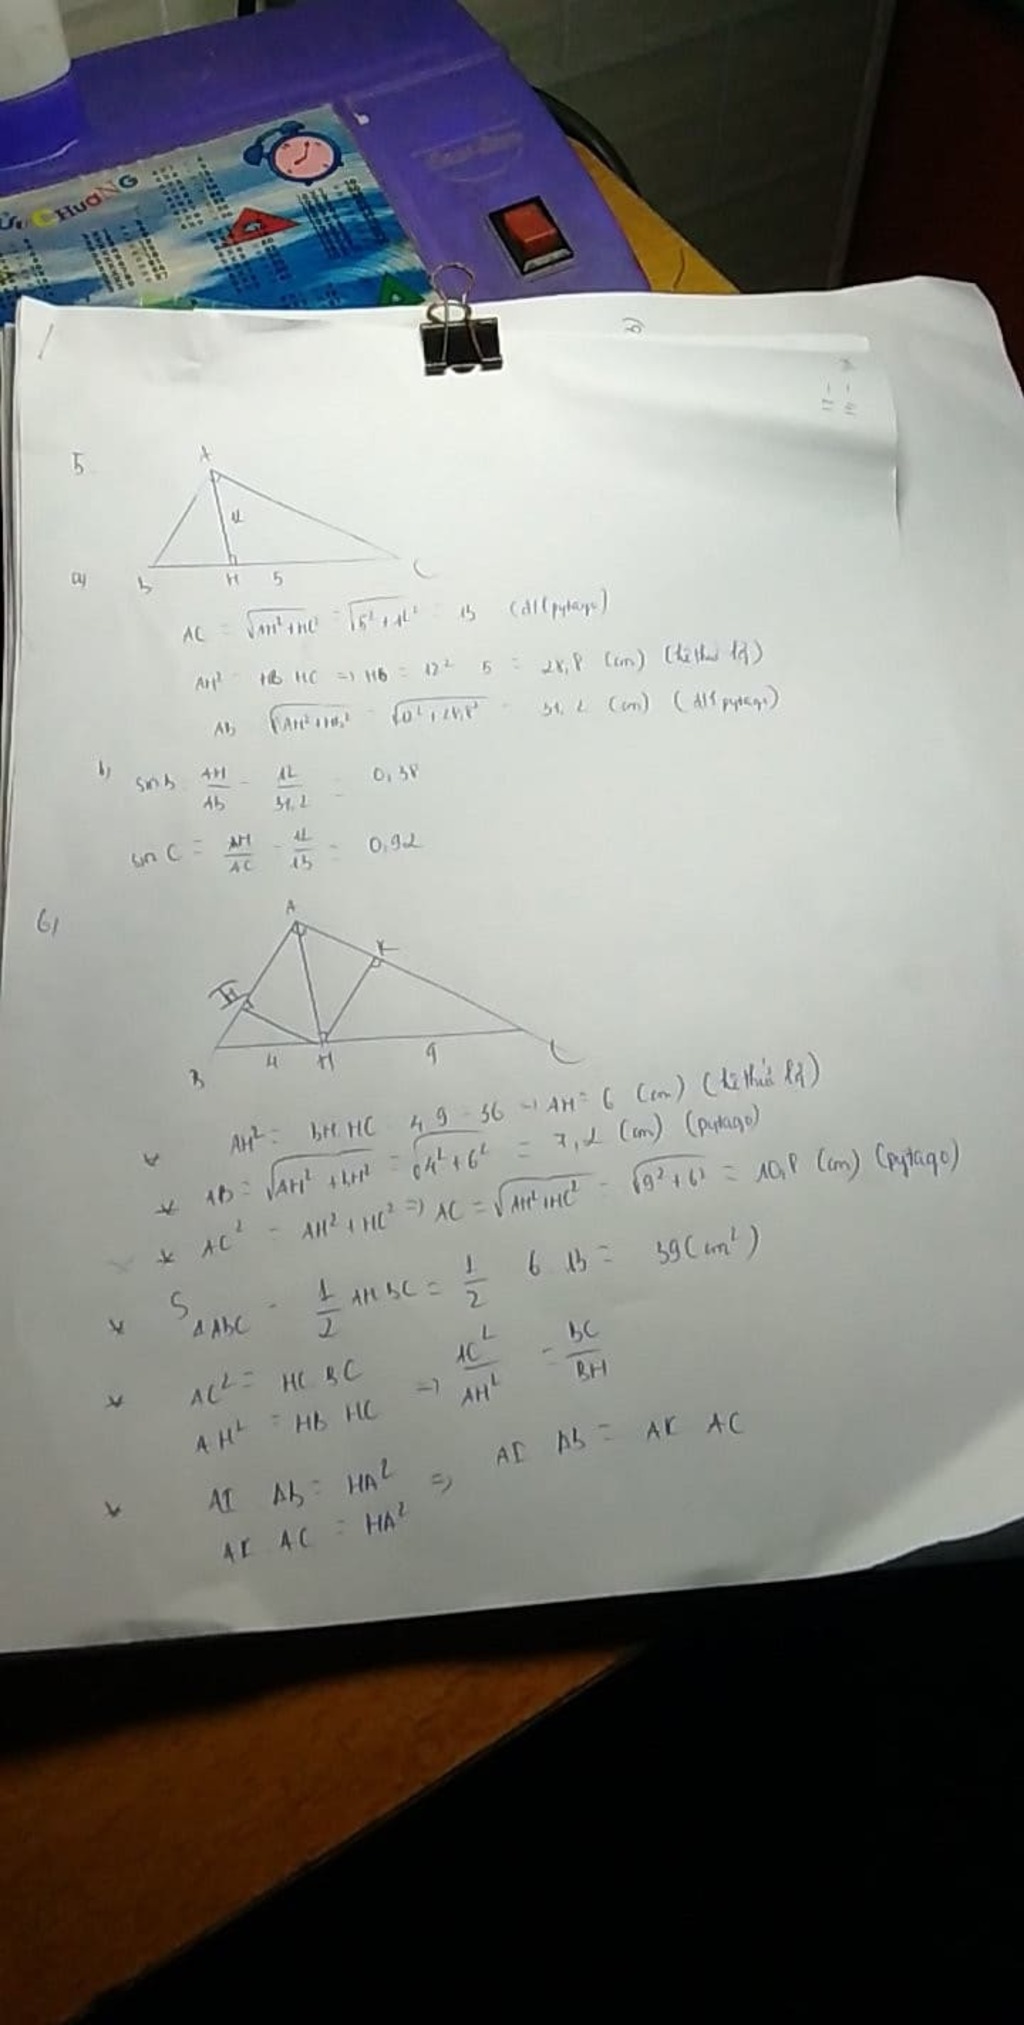 CHƯƠNG
5
A
12
B H 5 C
a)
AC = √AH²+HC² = √5²+12² = 13 (đlí pytago)
AH² = HB HC => HB = 12² 5 = 28,8 (cm) (hệ thức lg)
AB √AH²+HB² = √12²+28,8² = 31,2 (cm) (đlí pytago)
b) sin B AH/AB = 12/31,2 = 0,38
sin C = AH/AC = 12/13 = 0,92
6)
A
K
I
B 4 H 9 C
* AH² = BH.HC 4 9 = 36 => AH = 6 (cm) (hệ thức lg)
* AB = √AH²+BH² = √4²+6² = 7,2 (cm) (pytago)
* AC² = AH²+HC² => AC = √AH²+HC² = √9²+6² = 10,8 (cm) (pytago)
* S ΔABC = 1/2 AH BC = 1/2 6 13 = 39 (cm²)
* AC² = HC BC
AH² = HB HC => AC²/AH² = BC/BH
* AI AB = HA² => AI AB = AK AC
AK AC = HA²